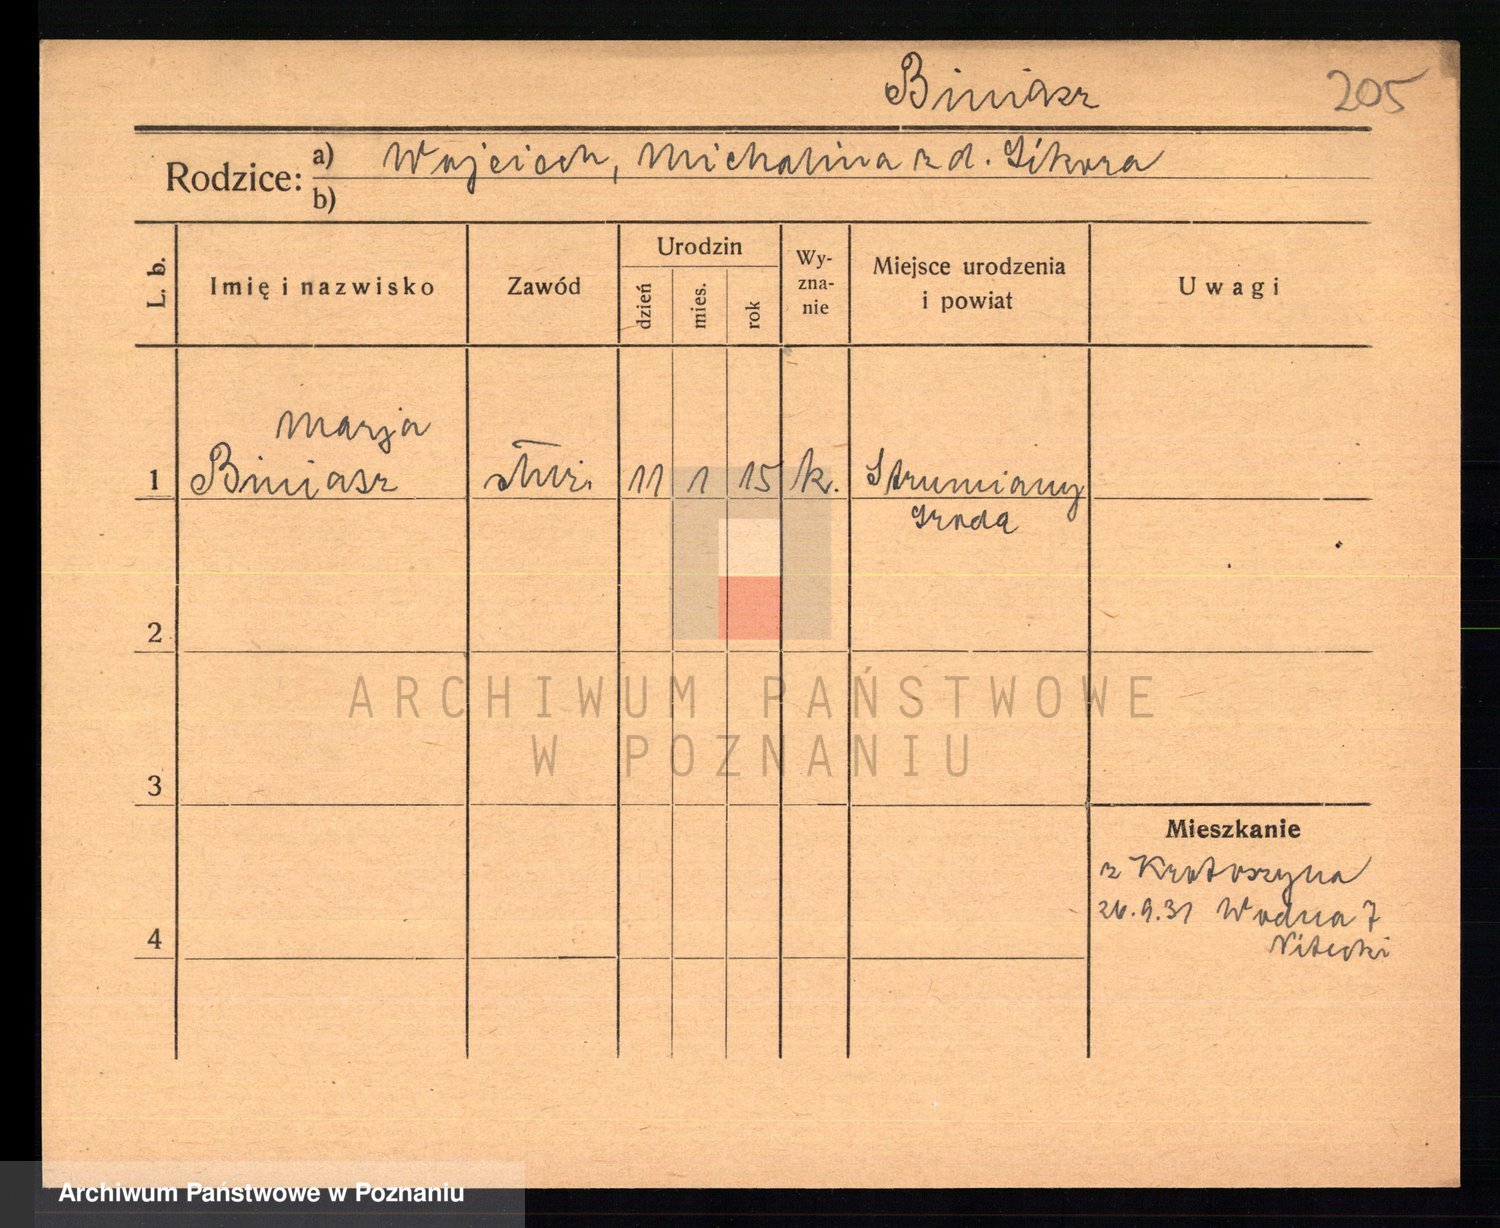 Biniasz 205
Rodzice: a) Wojciech, Michalina z d. Sikora
b)
L. b. Imię i nazwisko Zawód Urodzin dzień mies. rok Wy-zna-nie Miejsce urodzenia i powiat Uwagi
Marja
1 Biniasz służ. 11 1 15 k. Strumiany
Środa
2
ARCHIWUM PAŃSTWOWE
W POZNANIU
3
Mieszkanie
z Krotoszyna
4 26.9.31 Wodna 7
Nitecki
Archiwum Państwowe w Poznaniu